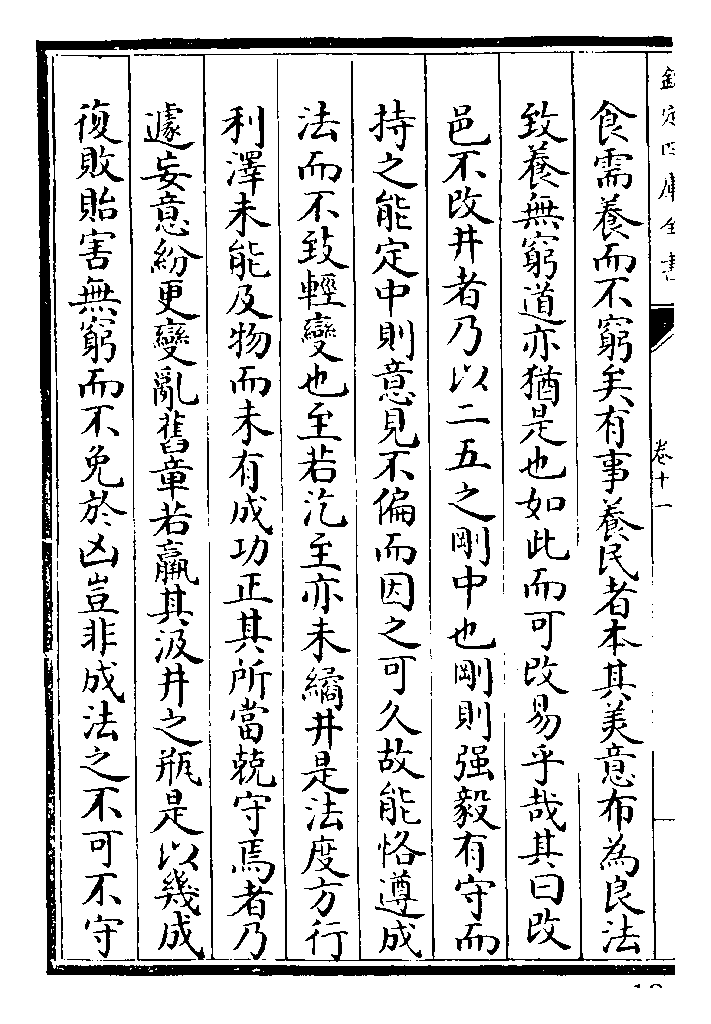 欽定四庫全書
卷十一
食需養而不窮矣有事養民者本其美意布為良法
致養無窮道亦猶是也如此而可改易乎哉其曰改
邑不改井者乃以二五之剛中也剛則强毅有守而
持之能定中則意見不偏而因之可久故能恪遵成
法而不致輕變也至若汔至亦未繘井是法度方行
利澤未能及物而未有成功正其所當兢守焉者乃
遽妄意紛更變亂舊章若羸其汲井之瓶是以幾成
復敗貽害無窮而不免於凶豈非成法之不可不守